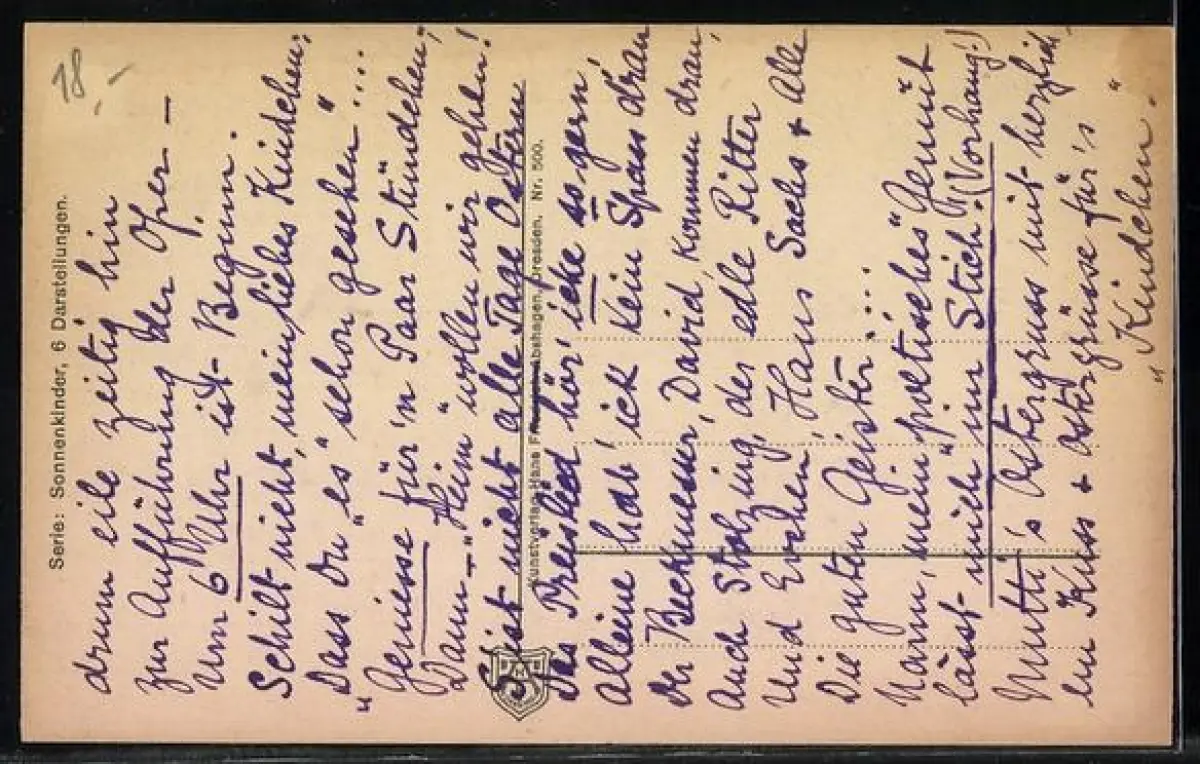 78
Serie: Sonnenkinder, 6 Darstellungen.
drum eile zeitig hin
zur Aufführung der Oper —
Um 6 Uhr ist Beginn.
Schilt nicht, mein liebes Kindchen:
Dass Du „es" schon gesehen"....
„Geniesse für 'n Paar Stündchen;
Dann — „Heim" wollen wir gehen!
S'ist nicht alle Tage Ostern
Kunstverlag Hans Dresden. Nr. 500.
Das Preislied hör' icke so gern,
Alleine hab' ick kein Spass dran
Der Beckmesser, David, kommen dran,
Auch Stolzing, der edle Ritter
Und Evchen, Hans Sachs + alle
Die guten Geister"....
Mann, mein „poetisches" Gemüt
lässt mich im „Stich"! (Vorhang!)
Mutti's Ostergruss mit herzlich-
em Kuss + Ostergrüsse für's
„Kindchen."